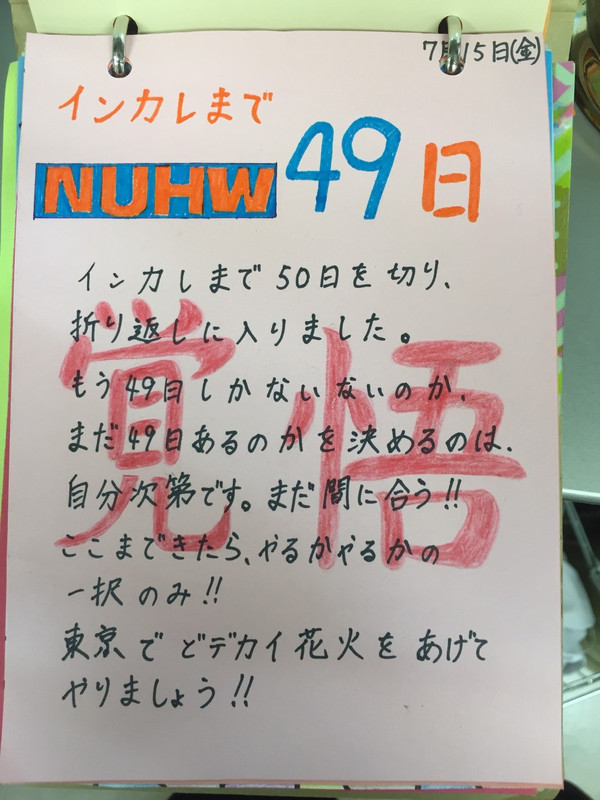 7月15日(金)
インカレまで
NUHW 49日
インカレまで50日を切り、
折り返しに入りました。
もう49日しかないないのか、
まだ49日あるのかを決めるのは、
自分次第です。まだ間に合う!!
ここまできたら、やるかやるかの
一択のみ!!
東京でどデカイ花火をあげて
やりましょう!!
覚悟